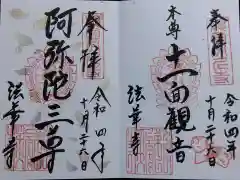 奉拝
令和四年
十月二十六日
阿弥陀三尊
法華寺
奉拝
令和四年
十月二十六日
本尊
十一面観音
法華寺